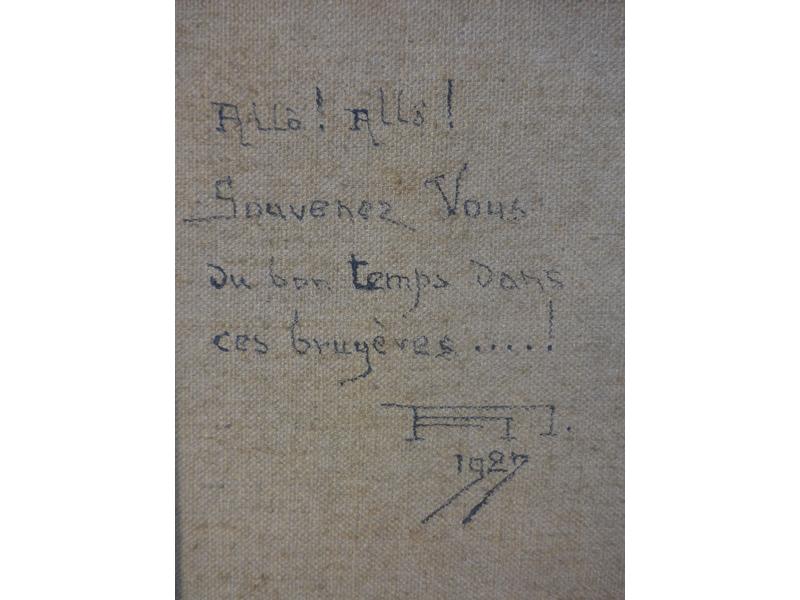 Allô! Allô!
Souvenez Vous
du bon temps dans
ces bruyères .....!
1927